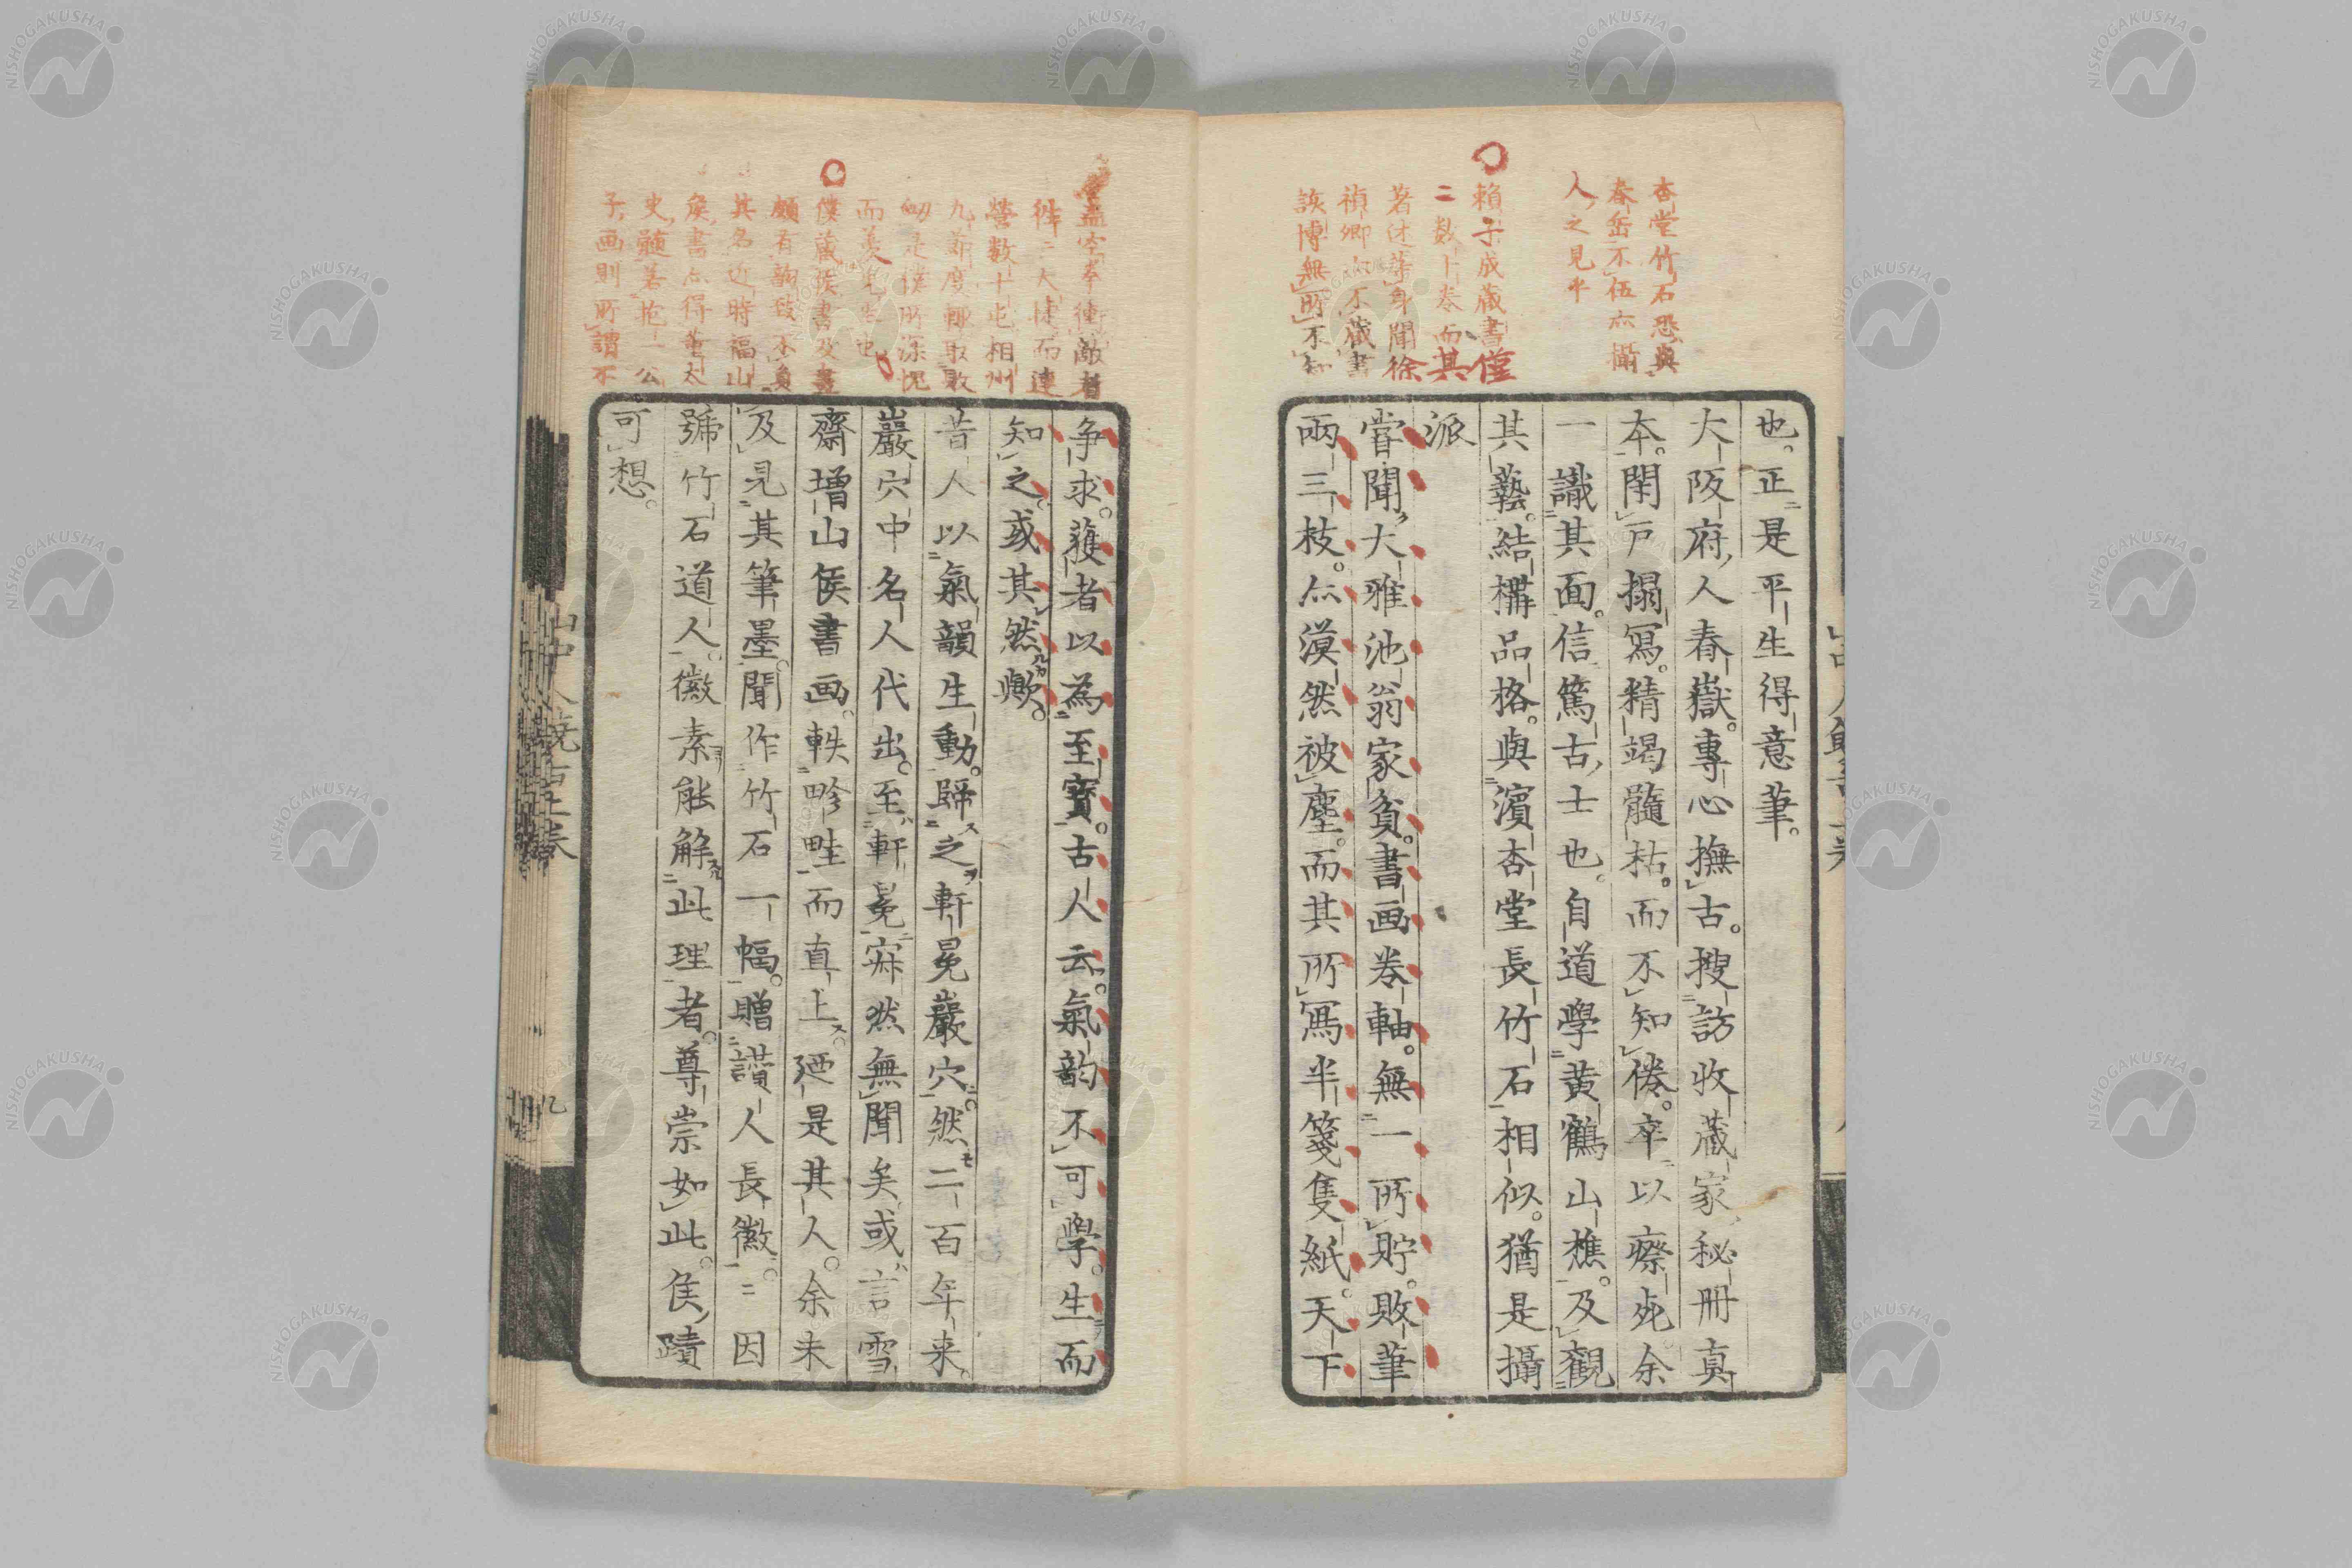 杏堂竹石恐與
春岳不伍亦攝
人之見乎
頼子成蔵書僅
二数十卷而其
著述等身聞徐
禎卿亦不蔵書
該博無所不知
也。正是平生得意筆。
大阪府人春嶽。專心撫古。搜訪收藏家秘冊真
本。閑戸搨寫。精竭髓枯。而不知倦。卒以瘵死余
一識其面。信篤古士也。自道學黃鶴山樵。及觀
其藝。結構品格。與濱杏堂長竹石相似。猶是攝
派
嘗聞大雅池翁家貧。書画卷軸。無一所貯。敗筆
兩三枝。亦漠然被塵。而其所寫半箋隻紙。天下
盖空拳衝敵者
徃々大捷而連
營数十屯相州
九節度輙取敗
衂是僕所深愧
而羨先生也
僕蔵侯書及畫
頗有韵致不負
其名近時福山
矦書亦得董太
史髄若抱一公
子画則所謂不
争求。獲者以為至寶。古人云。氣韵不可學。生而
知之。或其然歟。
昔人以氣韻生動。歸之軒冕巖穴。然二百年来。
巖穴中名人代出。至軒冕寂然無聞矣。或言雪
齋増山侯書画。軼畛畦而直上。廼是其人。余未
及見其筆墨。聞作竹石一幅。贈讃人長徽。〻因
號竹石道人。徽素能解此理者。尊崇如此。侯蹟
可想。